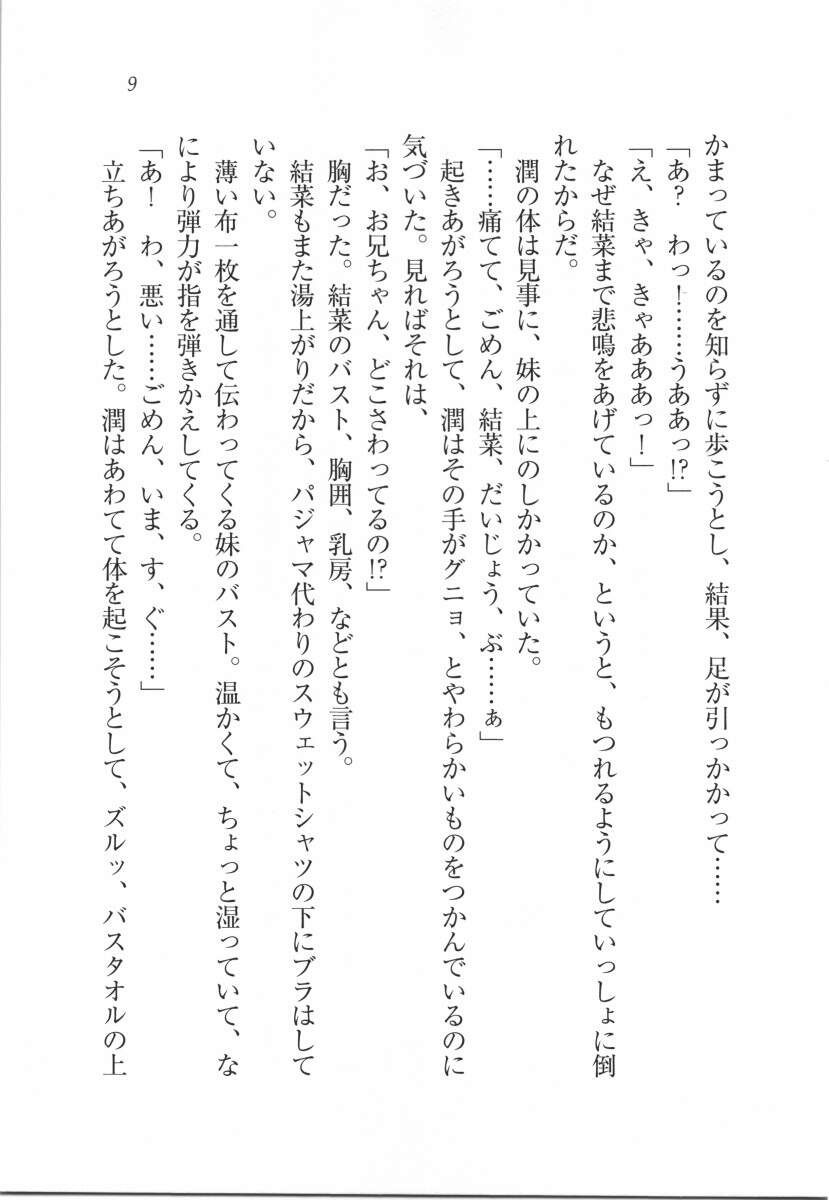 9
かまっているのを知らずに歩こうとし、結果、足が引っかかって……
「あ？　わっ！……うああっ!?」
「え、きゃ、きゃあああっ！」
なぜ結菜まで悲鳴をあげているのか、というと、もつれるようにしていっしょに倒
れたからだ。
潤の体は見事に、妹の上にのしかかっていた。
「……痛てて、ごめん、結菜、だいじょう、ぶ……ぁ」
起きあがろうとして、潤はその手がグニョ、とやわらかいものをつかんでいるのに
気づいた。見ればそれは、
「お、お兄ちゃん、どこさわってるの!?」
胸だった。結菜のバスト、胸囲、乳房、などとも言う。
結菜もまた湯上がりだから、パジャマ代わりのスウェットシャツの下にブラはして
いない。
薄い布一枚を通して伝わってくる妹のバスト。温かくて、ちょっと湿っていて、な
により弾力が指を弾きかえしてくる。
「あ！　わ、悪い……ごめん、いま、す、ぐ……」
立ちあがろうとした。潤はあわてて体を起こそうとして、ズルッ、バスタオルの上